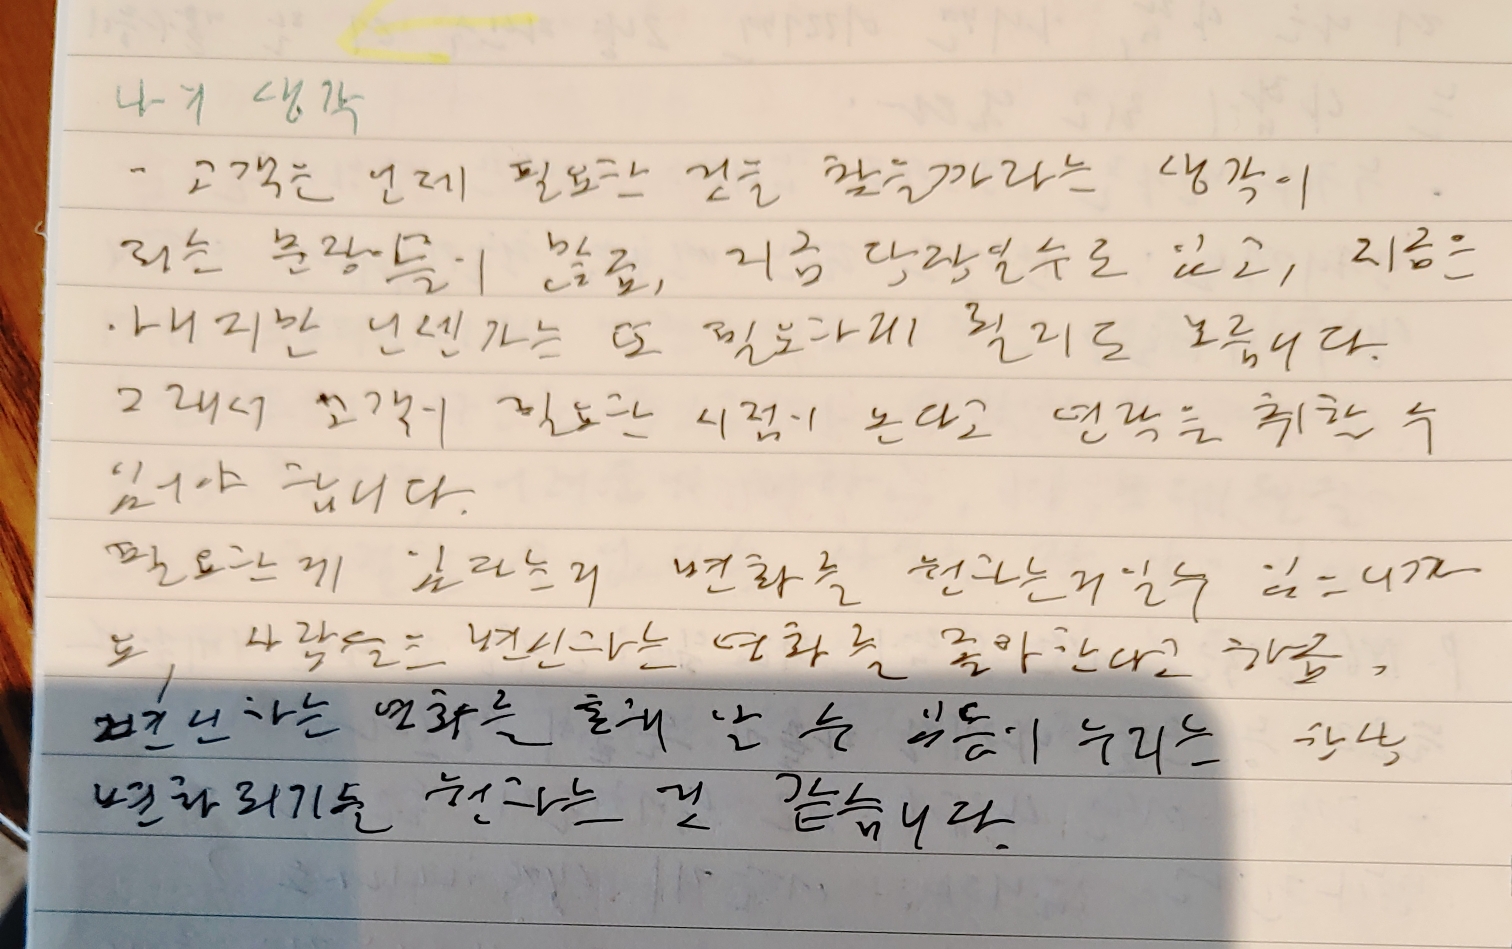 나의 생각
- 고객은 언제 필요한 것을 찾을까라는 생각이
되는 문장들이 말로, 지금 당장일수도 있고, 지금은
아니지만 언젠가는 또 필요하게 될지도 모릅니다.
그래서 고객이 필요한 시점이 온다고 연락을 취할 수
있어야 합니다.
필요한게 있다는거 변화를 원하는거일수 있으니까
요, 사람들은 변신하는 영화를 좋아한다고 하죠,
변신하는 영화를 통해 알 수 있듯이 우리는 항상
변화되기를 원하는 것 같습니다.